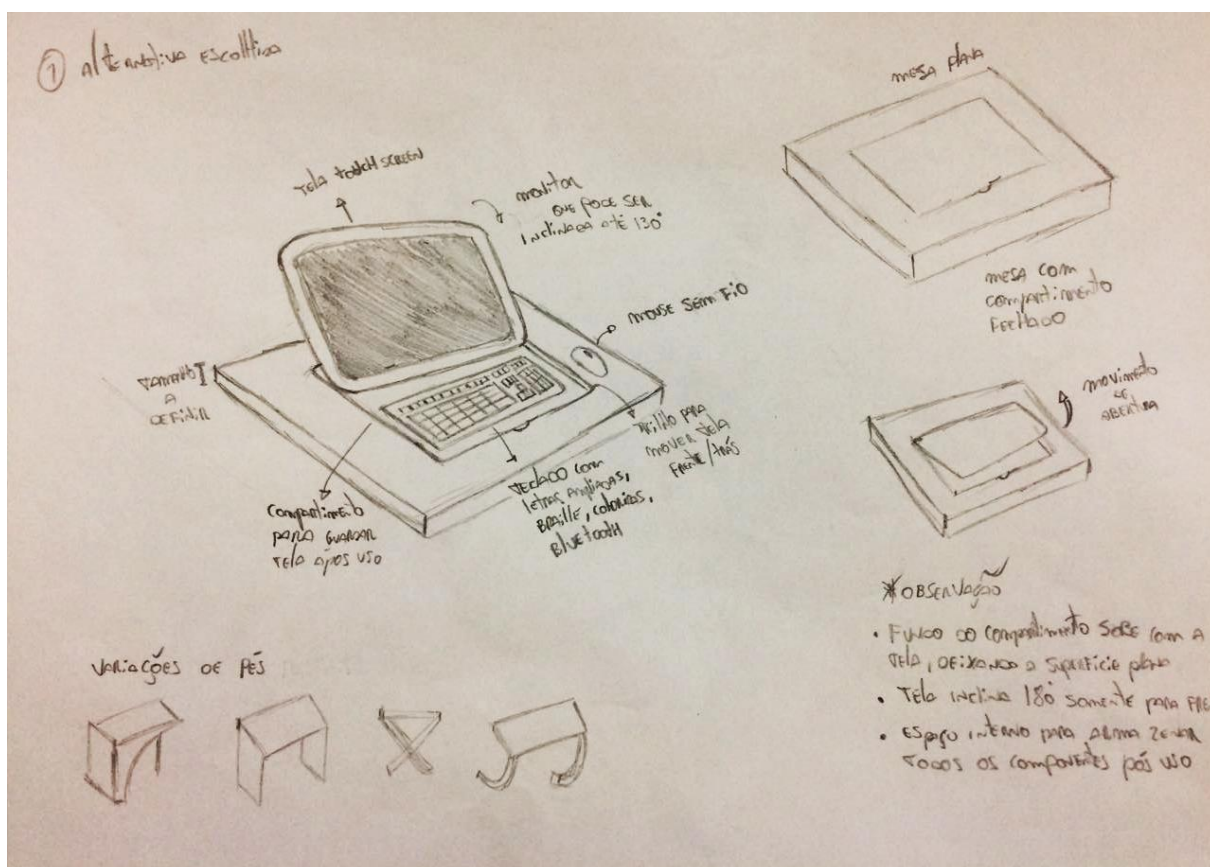 1 alternativa escolhida
tela touch screen
monitor
que pode ser
inclinada até 130°
mouse sem fio
tamanho
a
definir
trilho para
mover tela
frente/trás
teclado com
letras ampliadas,
braille, coloridas,
bluetooth
compartimento
para guardar
tela após uso
mesa plana
mesa com
compartimento
fechado
movimento
de
abertura
*observação
• Fundo do compartimento sobe com a
tela, deixando a superfície plana
• Tela inclina 180° somente para fre
• espaço interno para armazenar
todos os componentes pós uso
variações de pés